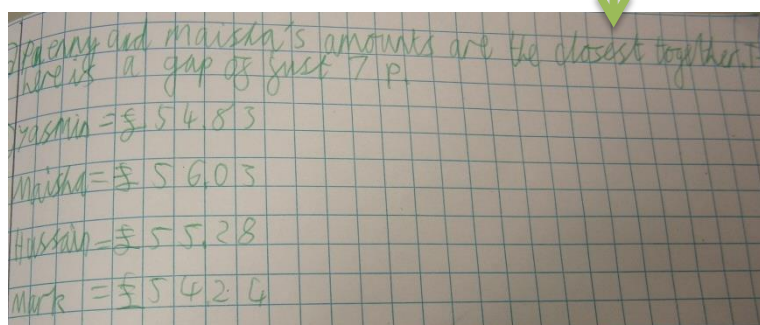 Penny and maisha's amounts are the closest together. T
here is a gap of just 7 p.
Yasmin = £54.83
Maisha = £56.03
Hussain = £55.28
Mark = £542.4